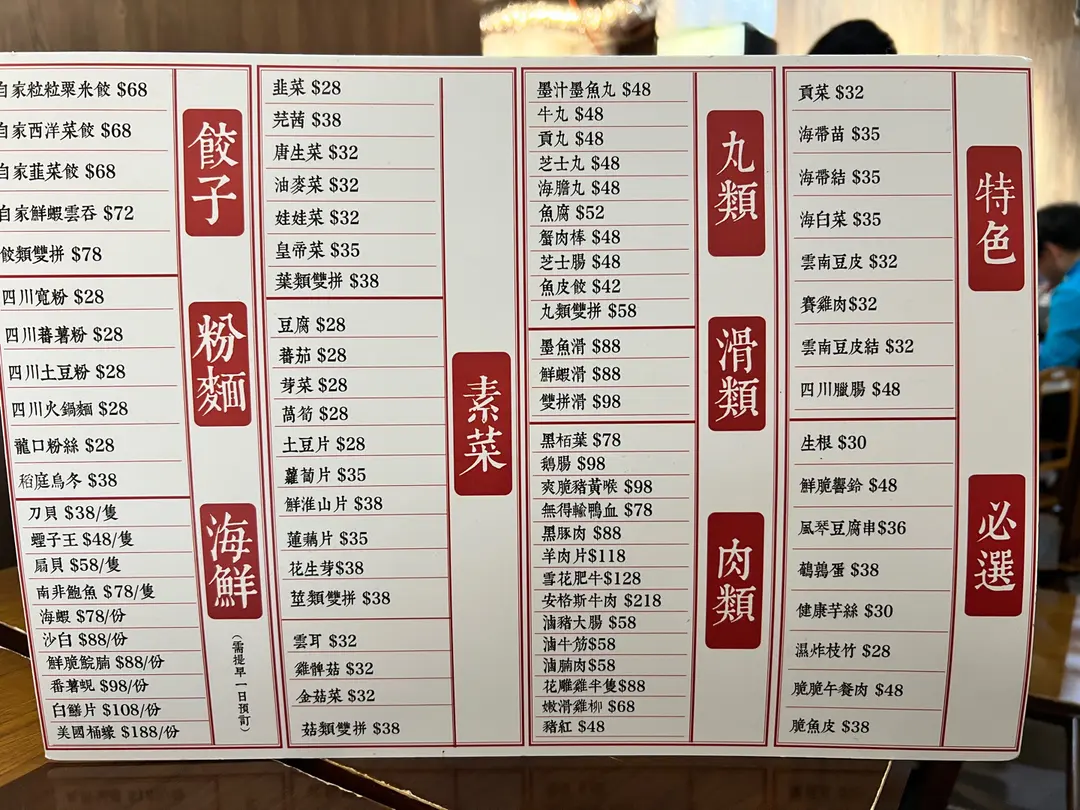 特色
貢菜 $32
海帶苗 $35
海帶結 $35
海白菜 $35
雲南豆皮 $32
賽雞肉$32
雲南豆皮結 $32
四川臘腸 $48
必選
生根 $30
鮮脆響鈴 $48
風琴豆腐串$36
鵪鶉蛋 $38
健康芋絲 $30
濕炸枝竹 $28
脆脆午餐肉 $48
脆魚皮 $38
丸類
墨汁墨魚丸 $48
牛丸 $48
貢丸 $48
芝士丸 $48
海膽丸 $48
魚腐 $52
蟹肉棒 $48
芝士腸 $48
魚皮餃 $42
丸類雙拼 $58
滑類
墨魚滑 $88
鮮蝦滑 $88
雙拼滑 $98
肉類
黑栢葉 $78
鵝腸 $98
爽脆豬黃喉 $98
無得輸鴨血 $78
黑豚肉 $88
羊肉片$118
雪花肥牛$128
安格斯牛肉 $218
滷豬大腸 $58
滷牛筋$58
滷腩肉$58
花雕雞半隻$88
嫩滑雞柳 $68
豬紅 $48
素菜
韭菜 $28
芫茜 $38
唐生菜 $32
油麥菜 $32
娃娃菜 $32
皇帝菜 $35
葉類雙拼 $38
豆腐 $28
蕃茄 $28
芽菜 $28
萵筍 $28
土豆片 $28
蘿蔔片 $35
鮮淮山片 $38
蓮藕片 $35
花生芽$38
莖類雙拼 $38
雲耳 $32
雞髀菇 $32
金菇菜 $32
菇類雙拼 $38
餃子
自家粒粒粟米餃 $68
自家西洋菜餃 $68
自家韮菜餃 $68
自家鮮蝦雲吞 $72
餃類雙拼 $78
粉麵
四川寬粉 $28
四川蕃薯粉 $28
四川土豆粉 $28
四川火鍋麵 $28
龍口粉絲 $28
稻庭烏冬 $38
海鮮
（需提早一日預訂）
刀貝 $38/隻
蟶子王 $48/隻
扇貝 $58/隻
南非鮑魚 $78/隻
海蝦 $78/份
沙白 $88/份
鮮脆鯇腩 $88/份
番薯蜆 $98/份
白鱔片 $108/份
美國桶蠔 $188/份